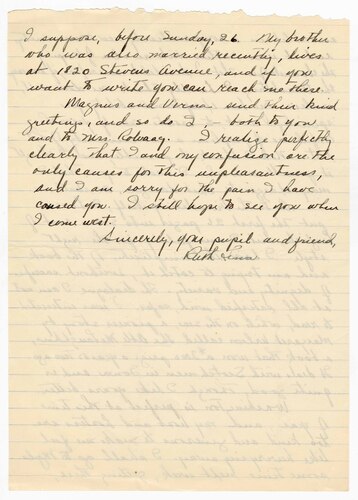 I suppose, before Sunday, 26. My brother
who was also married recently, lives
at 1820 Stevens Avenue, and if you
want to write you can reach me there.
Magnus and Verna send their kind
greetings, and so do I, - both to you
and to Mrs. Rolvaag. I realize perfectly
clearly that I and my confusion are the
only causes for this unpleasantness,
and I am sorry for the pain I have
caused you. I still hope to see you when
I come west.
Sincerely, your pupil and friend,
Ruth